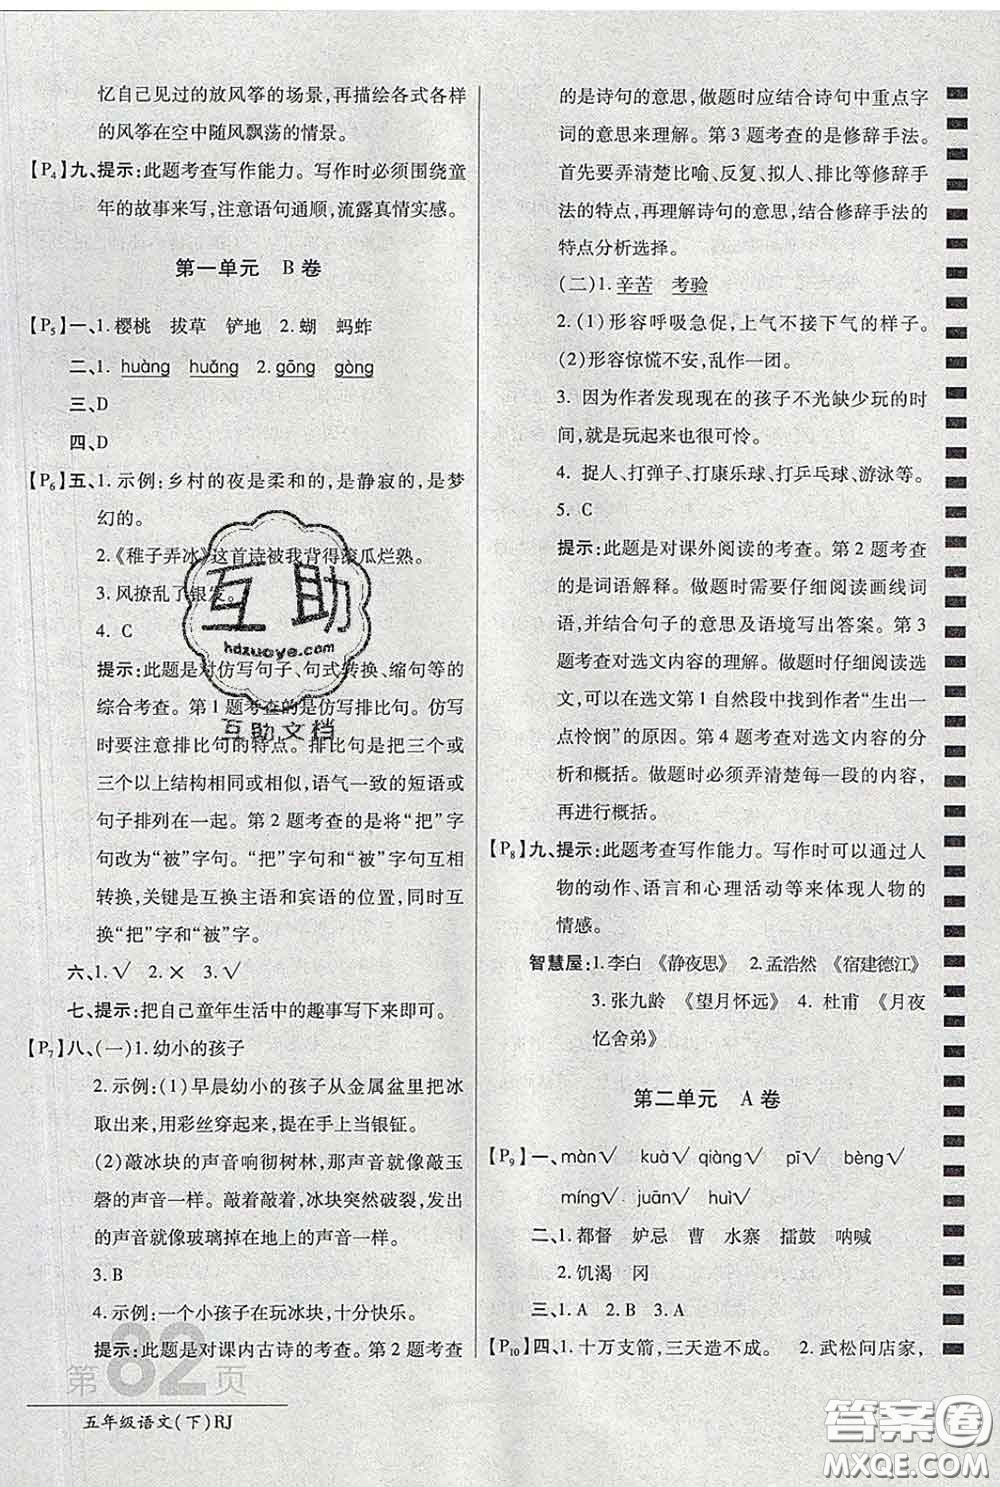 忆自己见过的放风筝的场景,再描绘各式各样
的风筝在空中随风飘荡的情景。
【P4】九、提示:此题考查写作能力。写作时必须围绕童
年的故事来写,注意语句通顺,流露真情实感。
第一单元 B卷
【P5】一、1.樱桃 拔草 铲地 2.蝴 蚂蚱
二、1. huàng huǎng 2. gōng gòng
三、D
四、D
【P6】五、1. 示例:乡村的夜是柔和的,是静寂的,是梦
幻的。
2.《稚子弄冰》这首诗被我背得滚瓜烂熟。
3. 风撩乱了银发。
4. C
提示:此题是对仿写句子、句式转换、缩句等的
综合考查。第1题考查的是仿写排比句。仿写
时要注意排比句的特点。排比句是把三个或
三个以上结构相同或相似,语气一致的短语或
句子排列在一起。第2题考查的是将“把”字
句改为“被”字句。“把”字句和“被”字句互相
转换,关键是互换主语和宾语的位置,同时替
换“把”字和“被”字。
六、1.√ 2.× 3.√
七、提示:把自己童年生活中的趣事写下来即可。
【P7】八、(一)1. 幼小的孩子
2. 示例:(1)早晨幼小的孩子从金属盆里把冰
取出来,用彩丝穿起来,提在手上当银钲。
(2)敲冰块的声音响彻树林,听着就像敲玉
磬的声音一样。敲着敲着,冰块突然破裂,发出
的声音就像玻璃掉在地上的声音一样。
3. B
4. 示例:一个小孩子在玩冰块,十分快乐。
提示:此题是对课内古诗的考查。第2题考查
第82页
五年级语文(下)RJ
的是诗句的意思,做题时应结合诗句中重点字
词的意思来理解。第3题考查的是修辞手法。
首先要弄清楚比喻、反复、拟人、排比等修辞手
法的特点,再理解诗句的意思,结合修辞手法的
特点分析选择。
(二)1. 辛苦 考验
2. (1)形容呼吸急促,上气不接下气的样子。
(2)形容惊慌不安,乱作一团。
3. 因为作者发现现在的孩子不光缺少玩的时
间,就是玩起来也很可怜。
4. 捉人、打弹子、打康乐球、打乒乓球、游泳等。
5. C
提示:此题是对课外阅读的考查。第2题考查
的是词语解释。做题时需要仔细阅读画线词
语,并结合句子的意思及语境写出答案。第3
题考查对选文内容的理解。做题时仔细阅读选
文,可以在选文第1自然段中找到作者“生出一
点怜悯”的原因。第4题考查对选文内容的分
析和概括。做题时必须弄清楚每一段的内容,
再进行概括。
【P8】九、提示:此题考查写作能力。写作时可以通过人
物的动作、语言和心理活动等来体现人物的
情感。
智慧屋:1.李白 《静夜思》 2.孟浩然 《宿建德江》
3. 张九龄 《望月怀远》 4. 杜甫 《月夜
忆舍弟》
第二单元 A卷
【P9】一、màn√ kuà√ qiàng√ pī√ bèng√
míng√ juān√ huì√
二、1. 都督 妒忌 曹 水寨 擂鼓 呐喊
2. 饥渴 冈
三、1. A 2. B 3. A
【P10】四、1. 十万支箭,三天造不成。 2. 武松问店家,
互助
hdzuoye.com
互助文档
答案圈
MXQE.COM